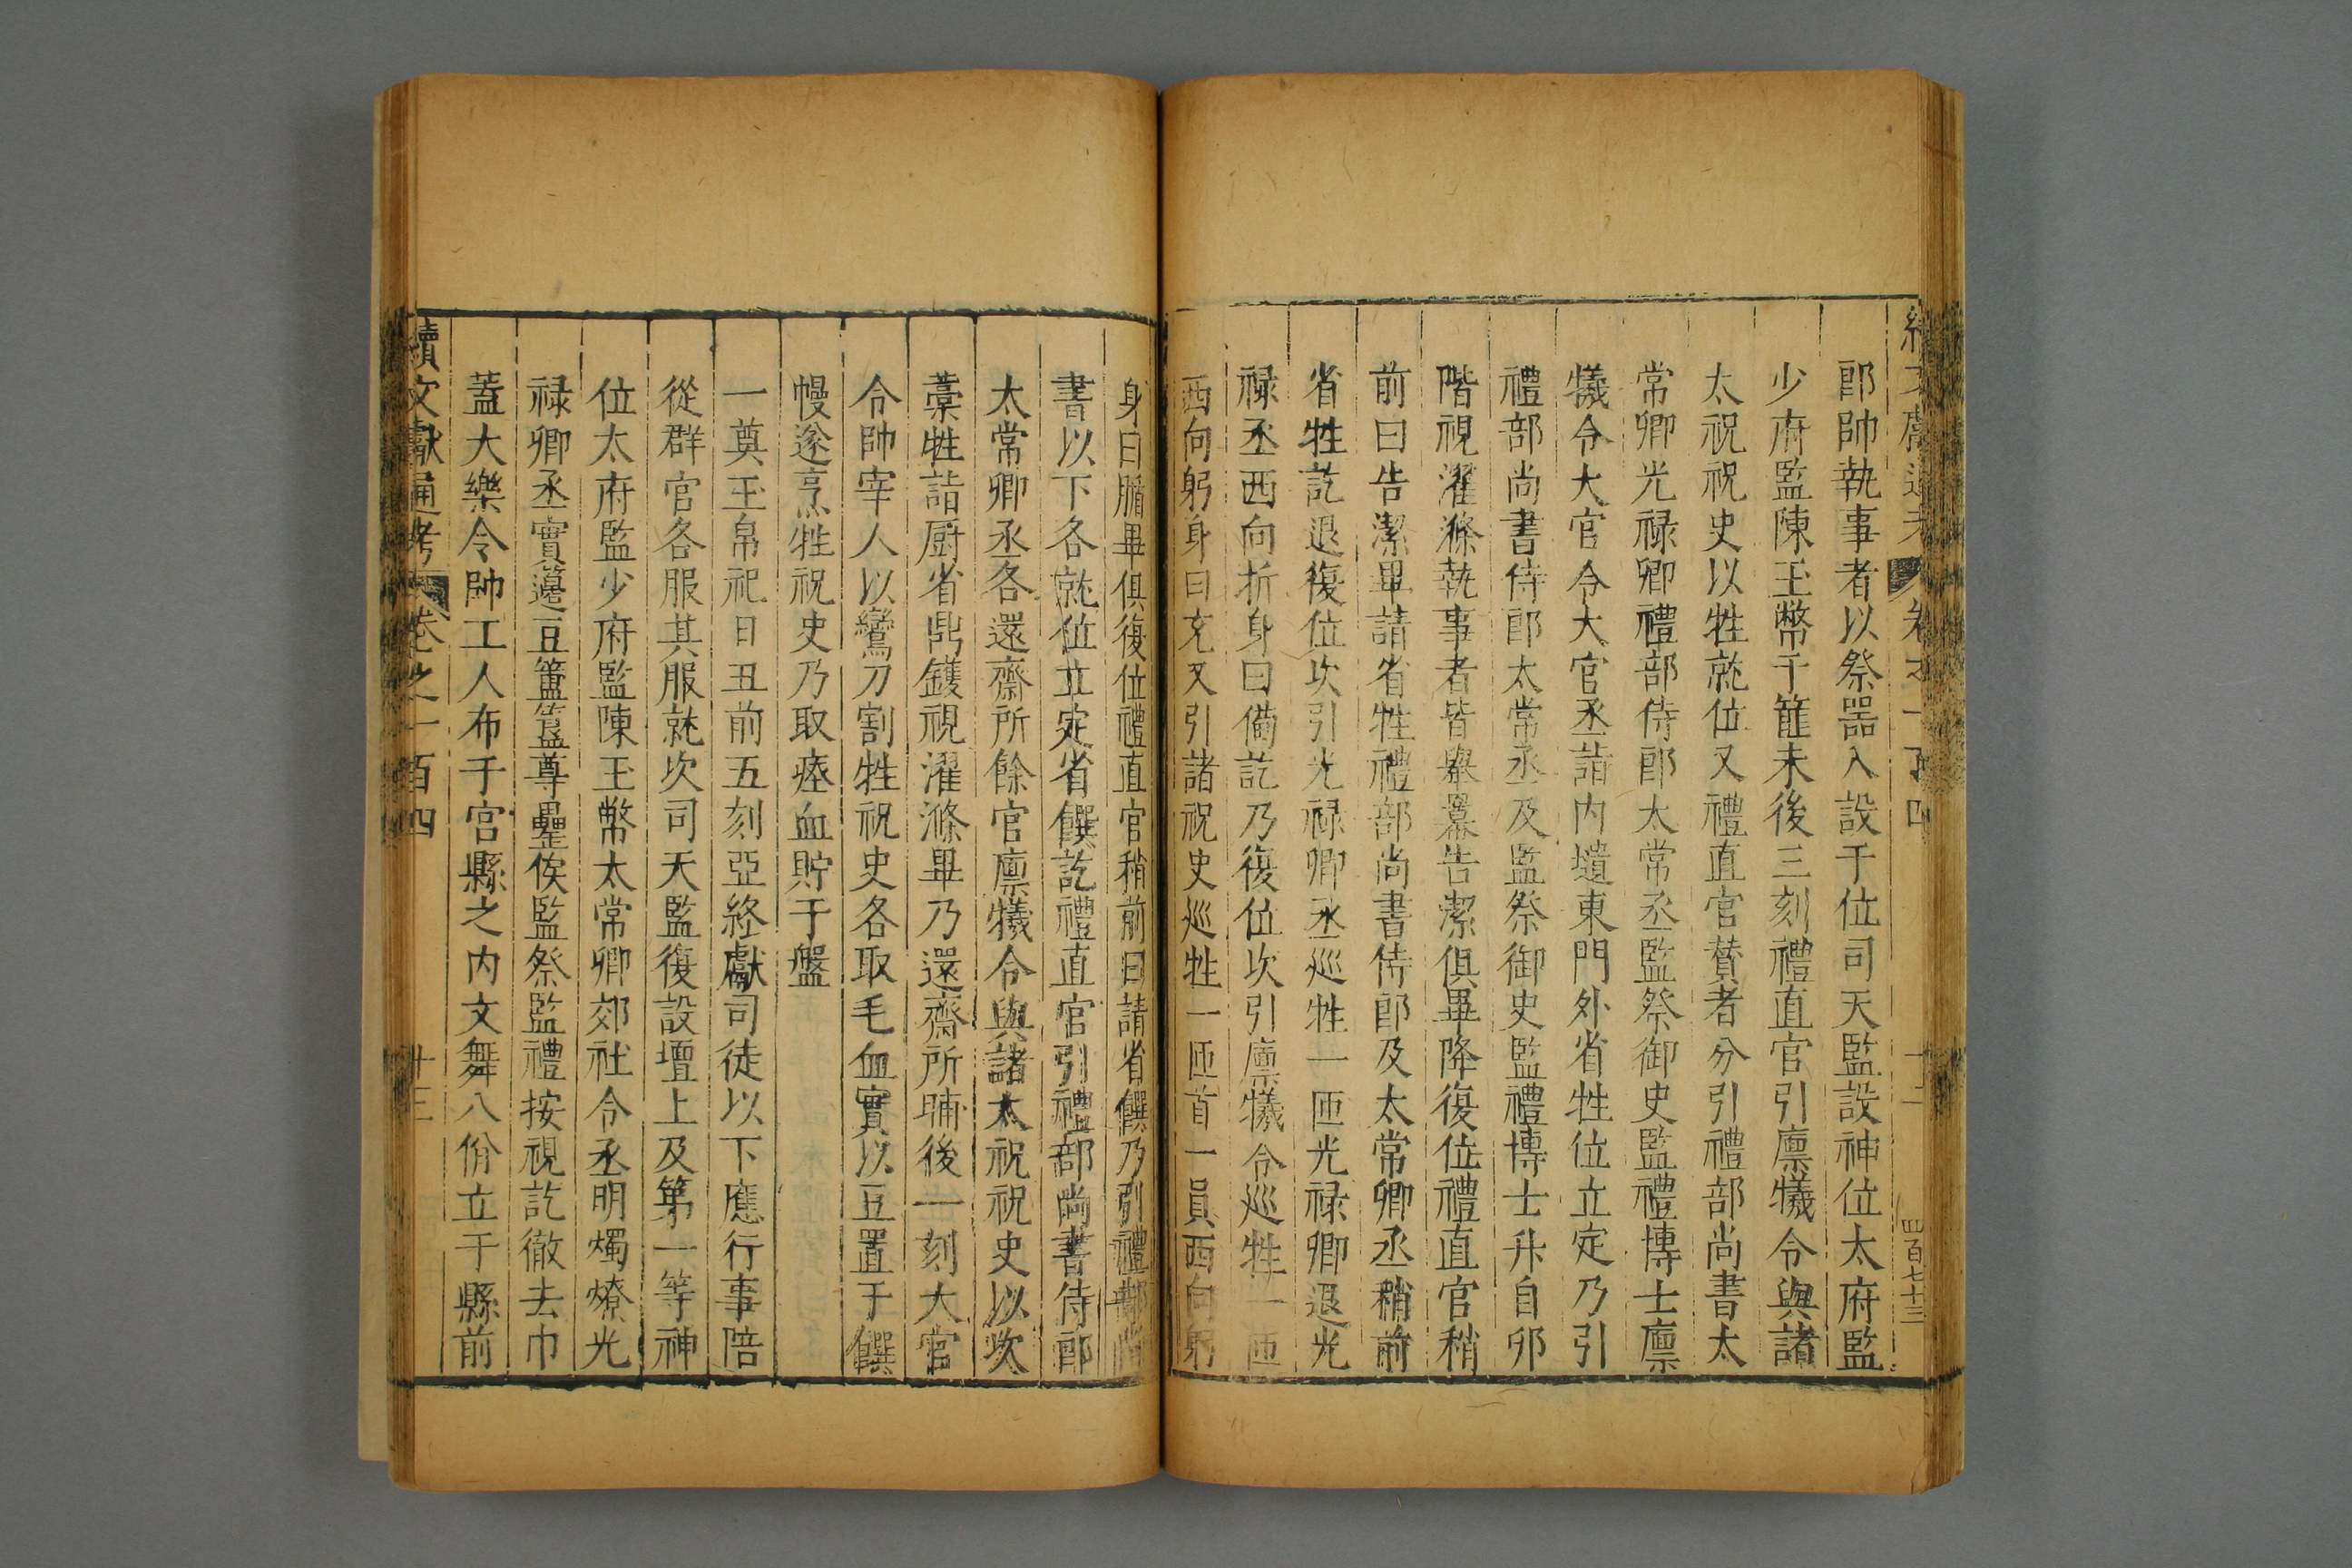 郎帥執事者以祭噐入設于位司天監設神位太府監
少府監陳玉幣于篚未後三刻禮直官引廩犧令與諸
太祝祝史以牲就位又禮直官賛者分引禮部尚書太
常卿光禄卿禮部侍郎太常丞監祭御史監禮博士廩
犧令大官令大官丞詣内壝東門外省牲位立定乃引
禮部尚書侍郎太常丞及監祭御史監禮博士升自卯
階視濯滌執事者皆舉羃告潔俱畢降復位禮直官稍
前曰告潔畢請省牲禮部尚書侍郎及太常卿丞稍前
省牲訖退復位次引光禄卿丞巡牲一匝光禄卿退光
禄丞西向折身曰備訖乃復位次引廩犧令巡牲一匝
西向躬身曰充又引諸祝史巡牲一匝首一員西向躬
身曰腯畢俱復位禮直官稍前曰請省饌乃引禮部尚
書以下各就位立定省饌訖禮直官引禮部尚書侍郎
太常卿丞各還齋所餘官廩犧令與諸太祝祝史以次
藁牲詣厨省鼎鑊視濯滌畢乃還齋所晡後一刻大官
令帥宰人以鸞刀割牲祝史各取毛血實以豆置于饌
幔遂烹牲祝史乃取瘞血貯于盤
一奠玉帛祀日丑前五刻亞終獻司徒以下應行事陪
從群官各服其服就次司天監復設壇上及第一等神
位太府監少府監陳玉幣太常卿郊社令丞明燭燎光
禄卿丞實籩豆簠簋尊罍俟監祭監禮按視訖徹去巾
蓋大樂令帥工人布于宮縣之内文舞八佾立于縣前
續文獻通考 卷之一百四 廿三